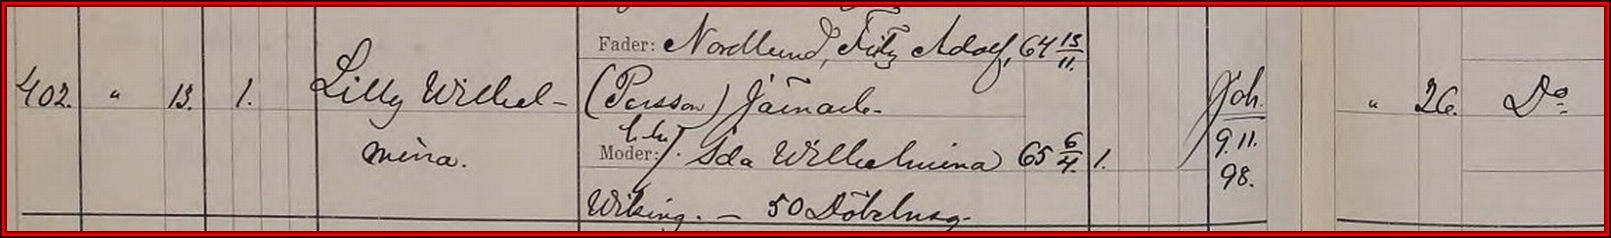 Fader: Nordlund, Fritz Adolf, 64 15/11.
402. " 13. 1. Lilly Wilhel- (Persson) Järnarb. Joh. " 26. Do
h. hu 9.11.
mina. Moder: Ida Wilhelmina 65 6/4. 1.
98.
Wiking. - 50 Döbelnsg.